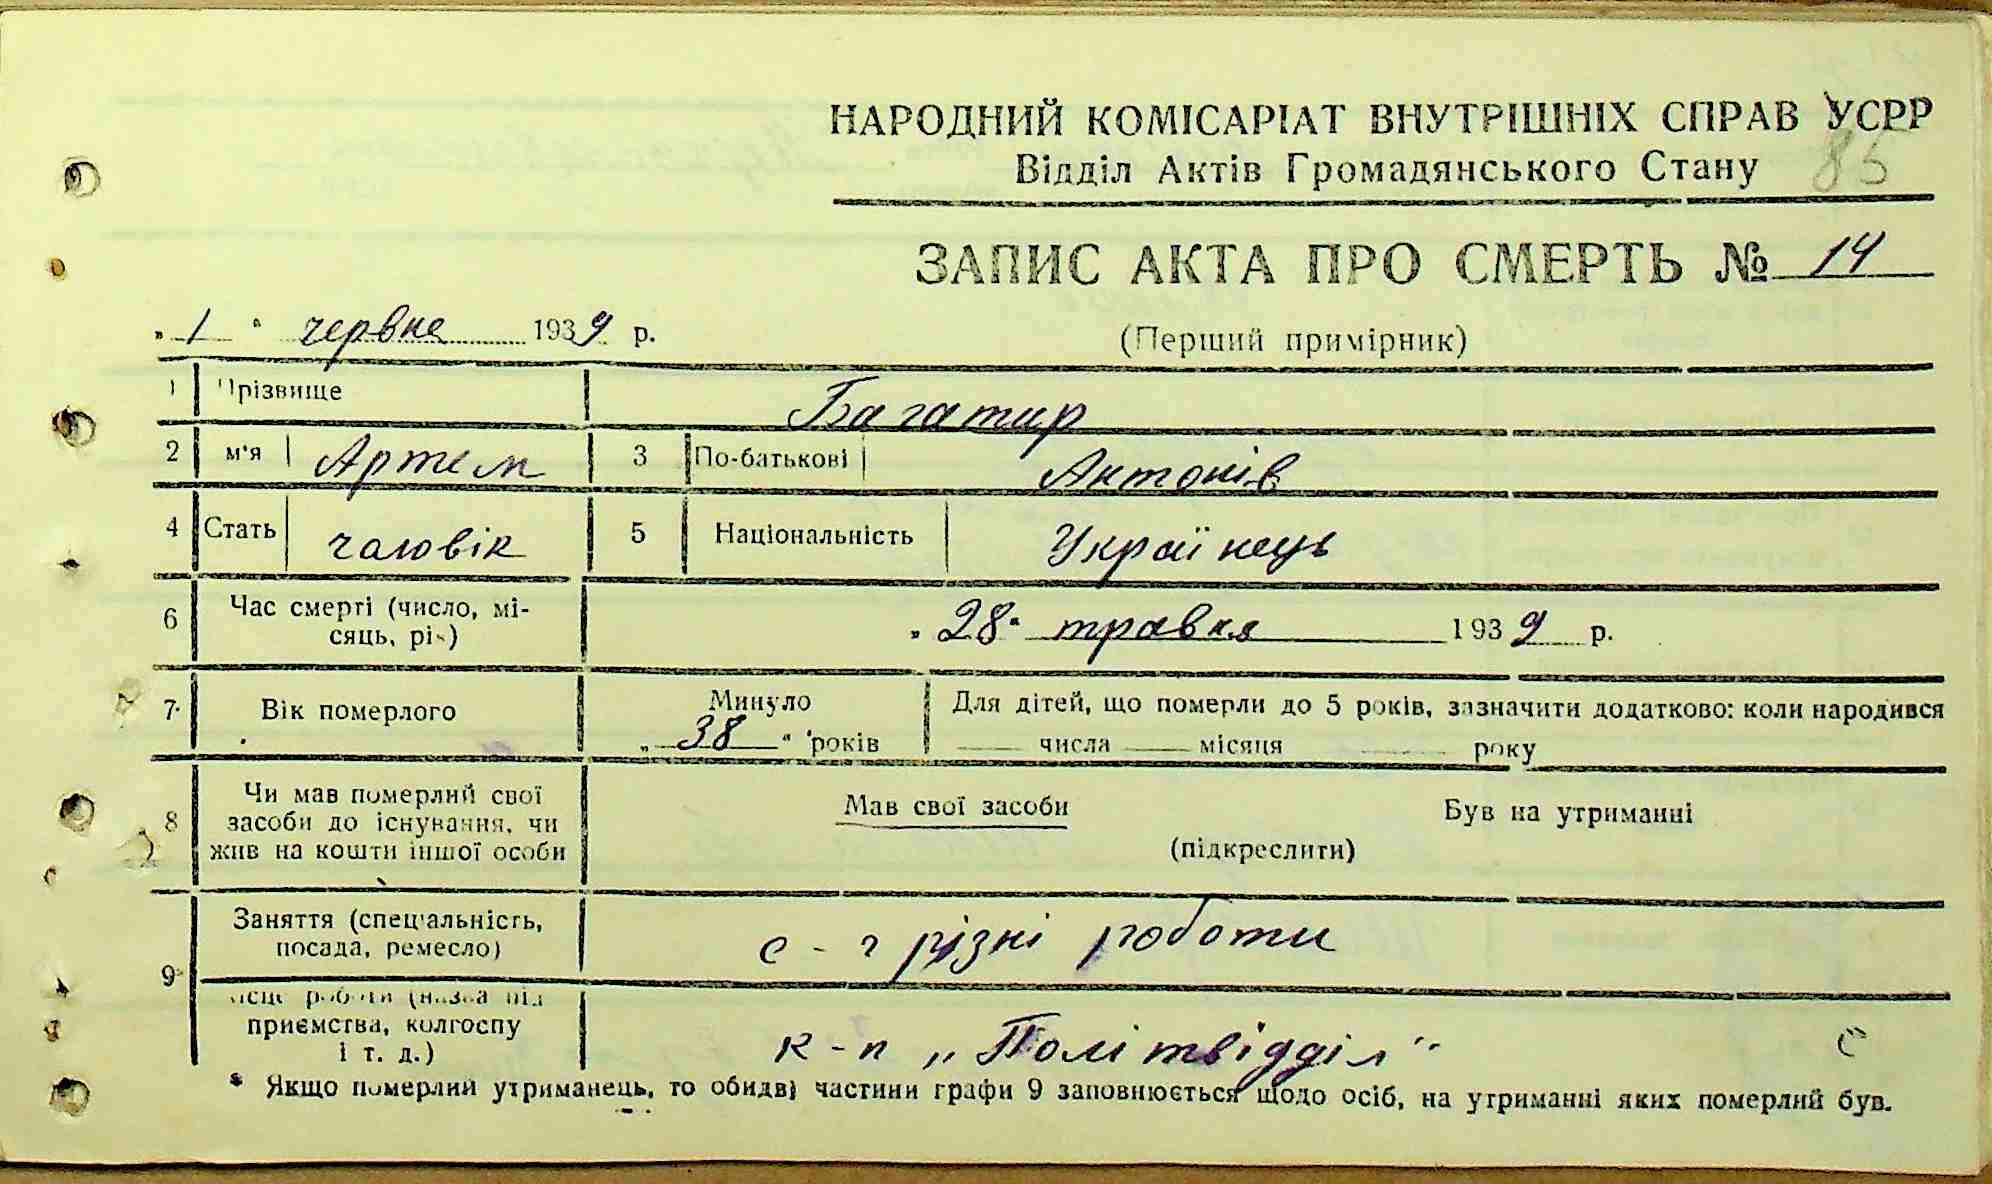 НАРОДНИЙ КОМІСАРІАТ ВНУТРІШНІХ СПРАВ УСРР
Відділ Актів Громадянського Стану 85
ЗАПИС АКТА ПРО СМЕРТЬ № 14
„ 1 " червня 1939 р.
(Перший примірник)
1 Прізвище Багатир
2 м'я Артем 3 По-батькові Антонів
4 Стать чоловік 5 Національність Українець
6 Час смерті (число, мі-
сяць, рік) „ 28 " травня 1939 р.
7 Вік померлого Минуло
„ 38 " років
Для дітей, що померли до 5 років, зазначити додатково: коли народився
числа місяця року
8 Чи мав померлий свої
засоби до існування, чи
жив на кошти іншої особи
Мав свої засоби Був на утриманні
(підкреслити)
9 Заняття (спеціальність,
посада, ремесло) с-г різні роботи
місце роботи (назва під
приємства, колгоспу
і т. д.) к-п „Політвідділ"
* Якщо померлий утриманець, то обидві частини графи 9 заповнюється щодо осіб, на утриманні яких померлий був.